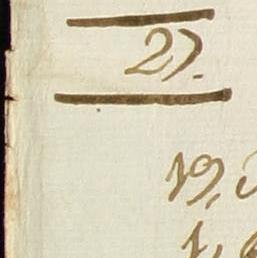 27.
19,
1,